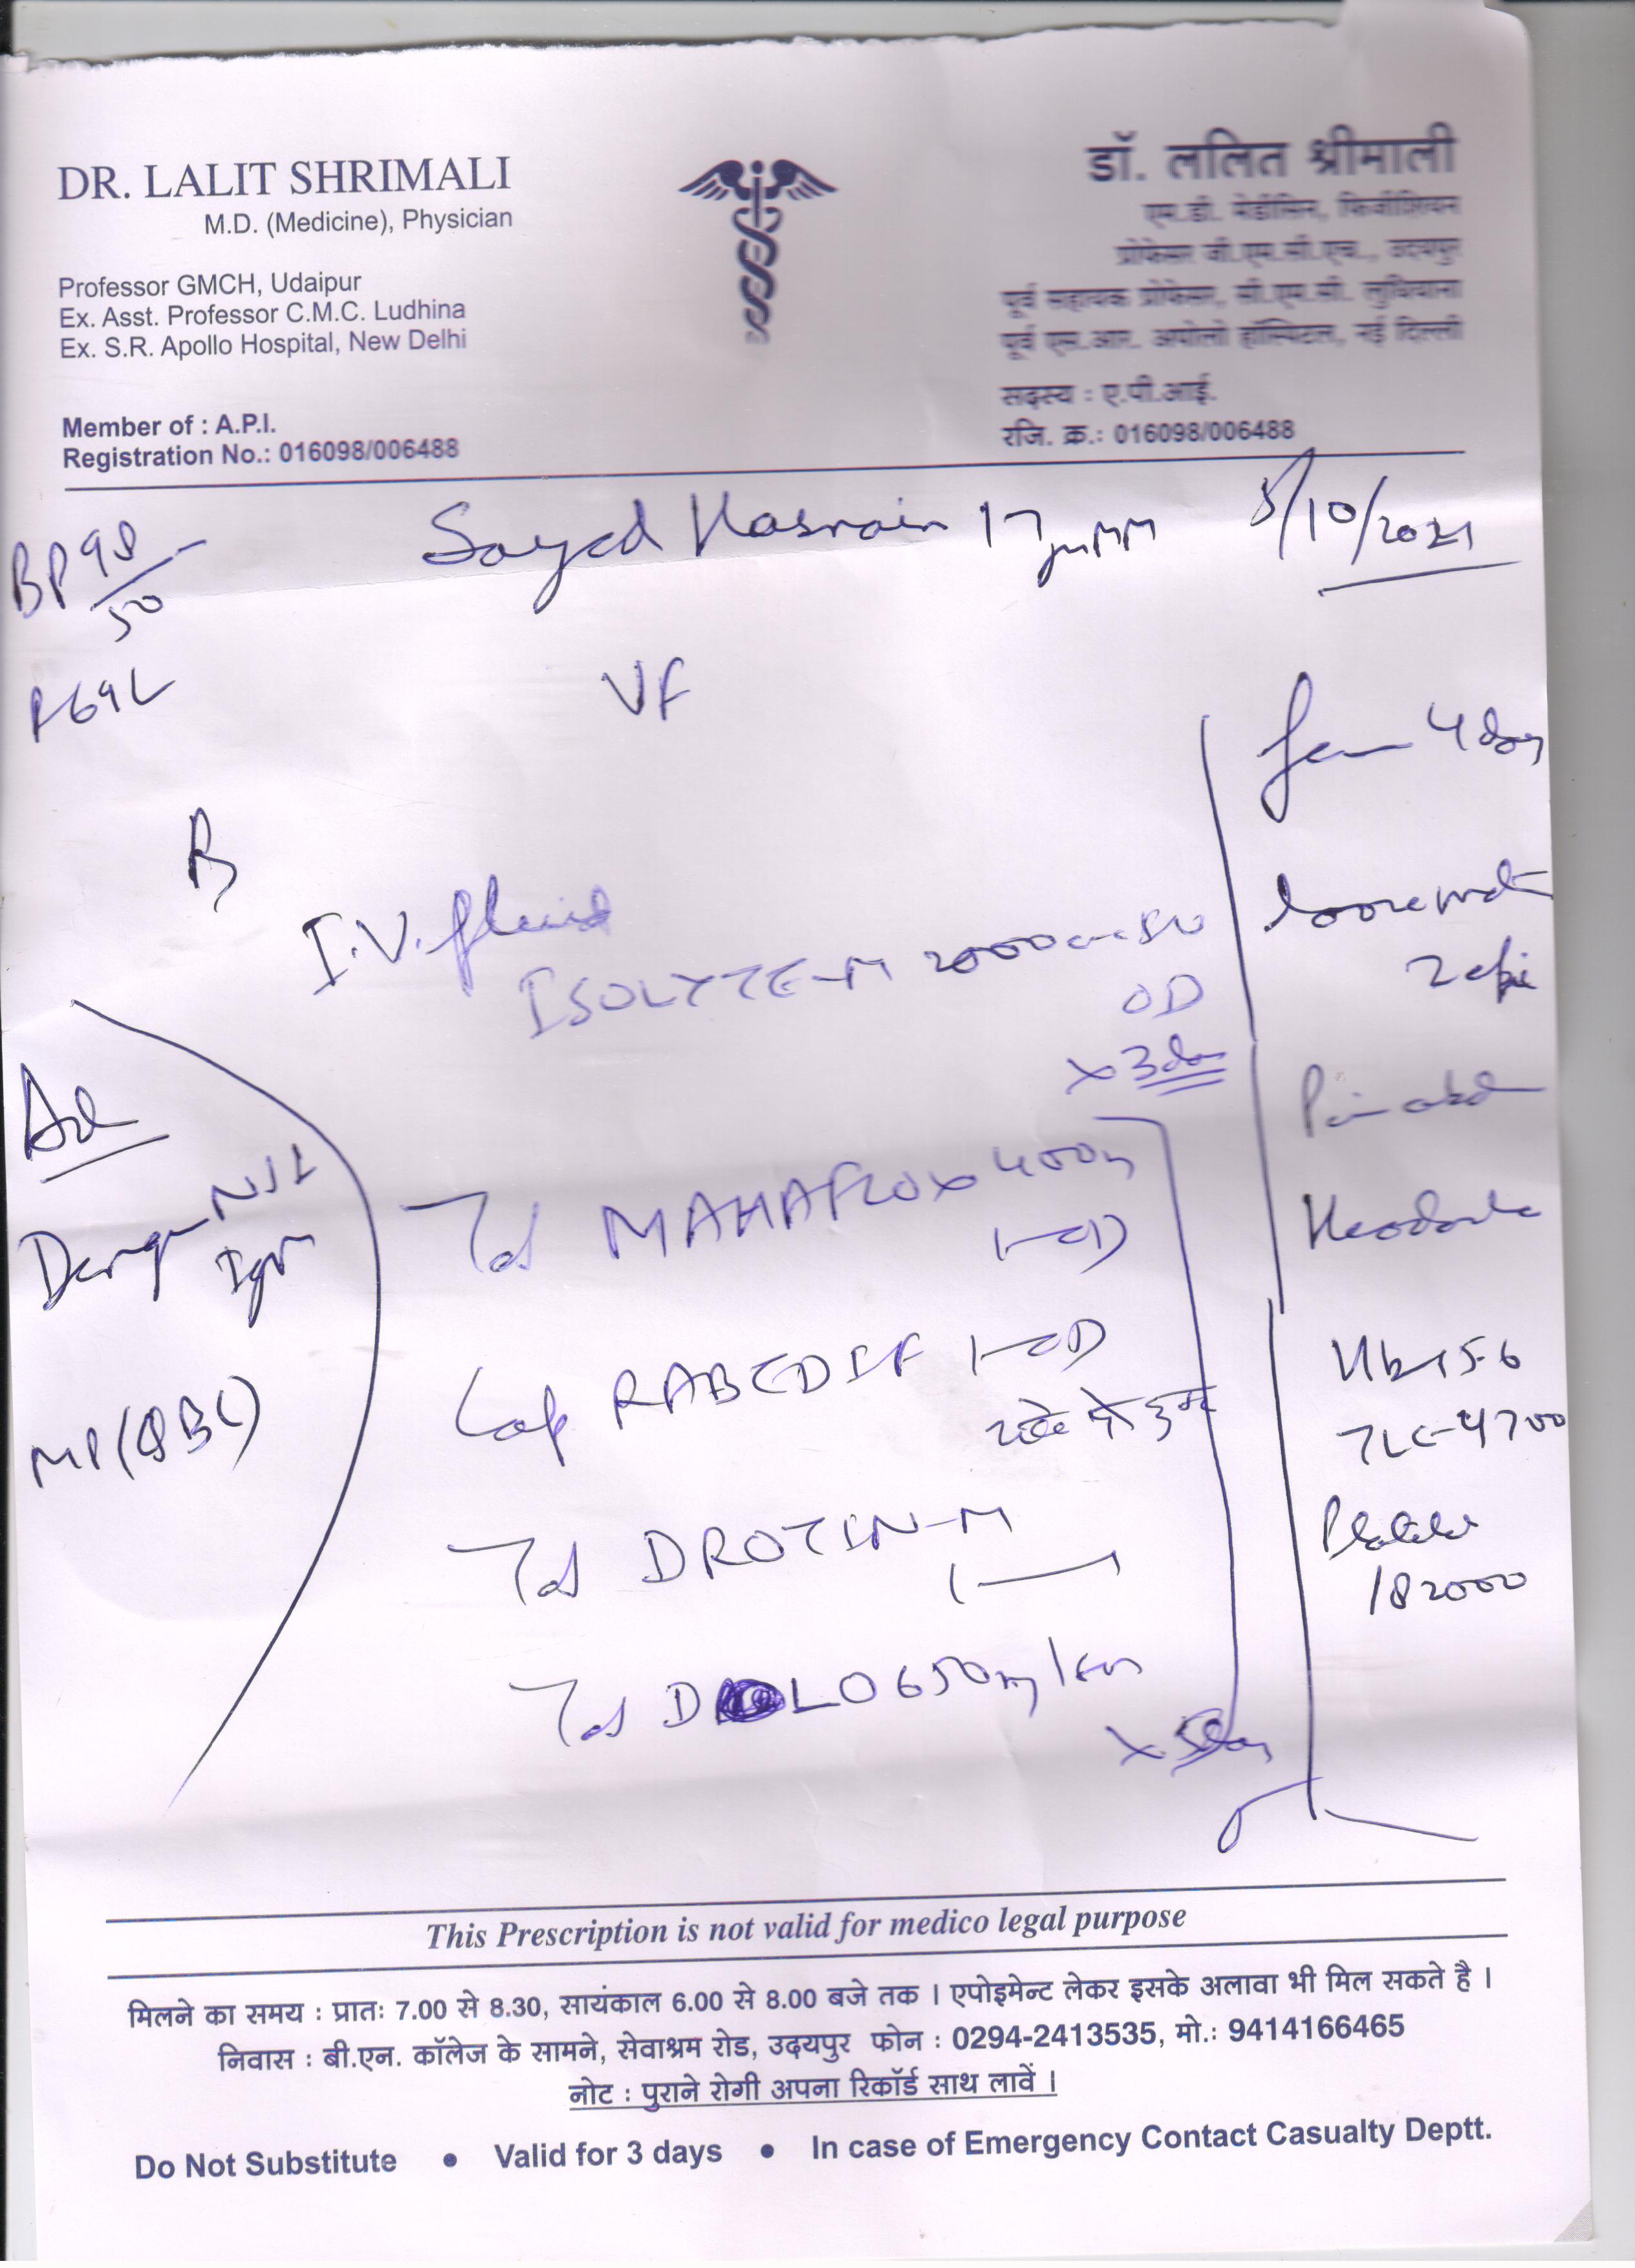 DR. LALIT SHRIMALI
M.D. (Medicine), Physician
Professor GMCH, Udaipur
Ex. Asst. Professor C.M.C. Ludhina
Ex. S.R. Apollo Hospital, New Delhi
Member of : A.P.I.
Registration No.: 016098/006488
डॉ. ललित श्रीमाली
एम.डी. मेडीसिन, फिजीशियन
प्रोफेसर जी.एम.सी.एच., उदयपुर
पूर्व सहायक प्रोफेसर, सी.एम.सी. लुधियाना
पूर्व एस.आर. अपोलो हॉस्पिटल, नई दिल्ली
सदस्य : ए.पी.आई.
रजि. क्र.: 016098/006488
Sayed Hasnain 17
/10/2021
BP 98/50
VF
4 day
I.V. fluid
ISOLYTE-M 2000
OD
x 3 day
Adv
Dengue NS1
IgM
MP (QBC)
Tab MAHAFLOX 400mg
1-OD
Cap RABEDIF 1-OD
Tab DROTIN-M
1-1
Tab DOLO 650mg
x 5 day
Loose motion
Pain abd
Headache
Hb-15.6
TLC-4700
Platelet
182000
This Prescription is not valid for medico legal purpose
मिलने का समय : प्रातः 7.00 से 8.30, सायंकाल 6.00 से 8.00 बजे तक । एपोइमेन्ट लेकर इसके अलावा भी मिल सकते है ।
निवास : बी.एन. कॉलेज के सामने, सेवाश्रम रोड, उदयपुर फोन : 0294-2413535, मो.: 9414166465
नोट : पुराने रोगी अपना रिकॉर्ड साथ लावें ।
Do Not Substitute • Valid for 3 days • In case of Emergency Contact Casualty Deptt.